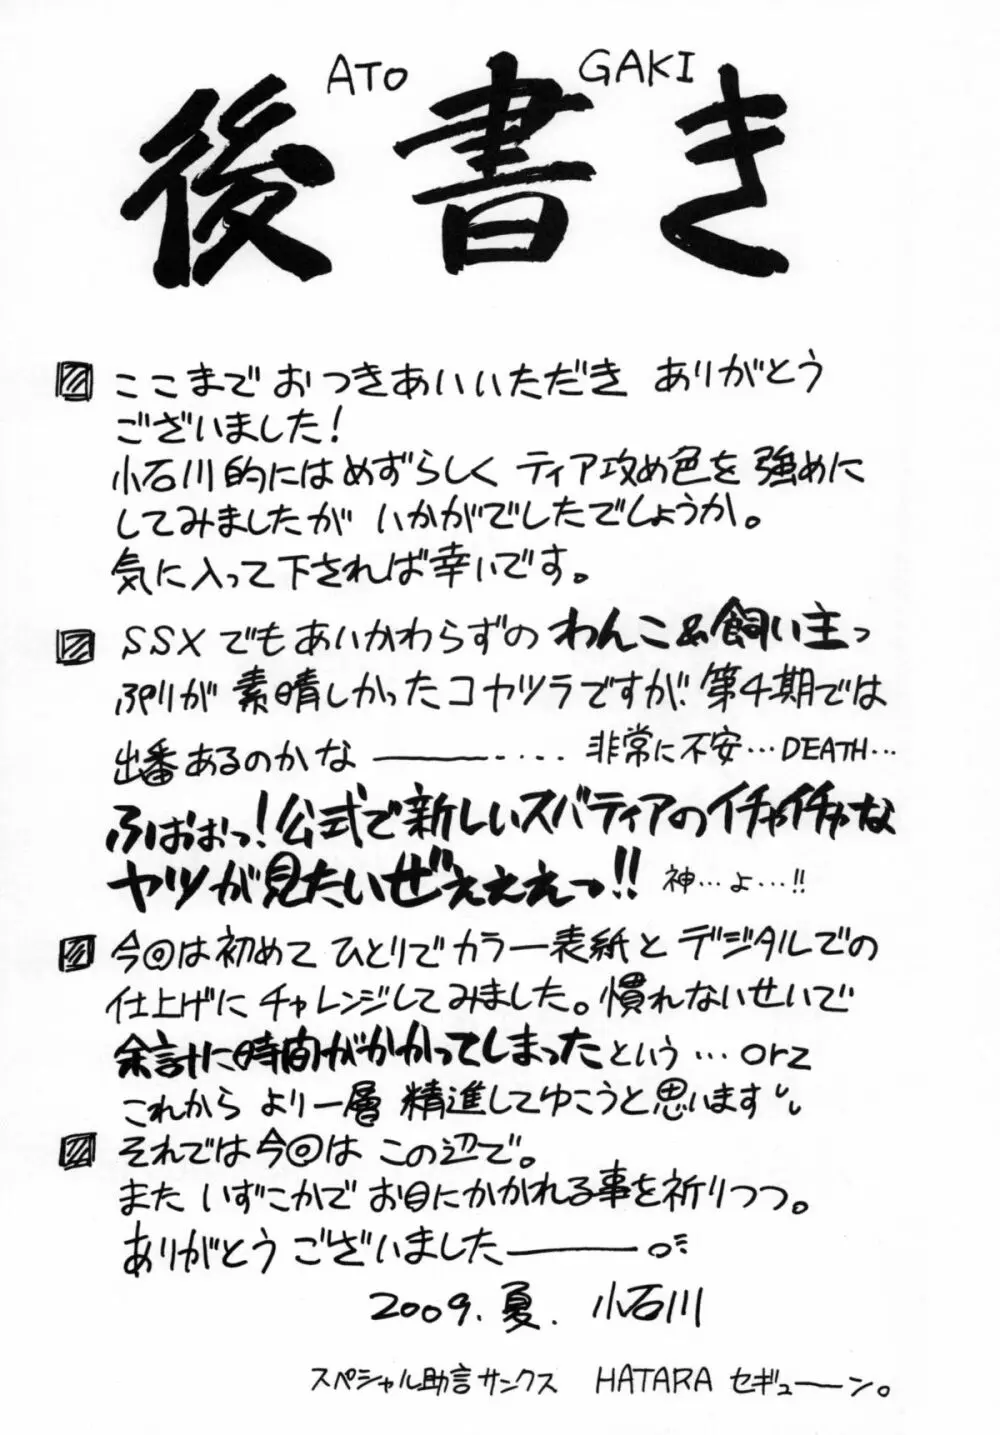 ATO GAKI
後書き
ここまで おつきあいいただき ありがとう
ございました!
小石川的にはめずらしく ティア攻め色を 強めに
してみましたが いかがでしたでしょうか。
気に入って下されば幸いです。
SSXでもあいかわらずの わんこ&飼い主っ
ぷりが 素晴しかったコヤツラですが 第4期では
出番あるのかな ――――‥‥ 非常に不安…DEATH…
ふおぉっ!公式で新しいスバティアのイチャイチャな
ヤツが見たいぜぇぇぇっ!! 神…よ…!!
今回は初めて ひとりでカラー表紙と デジタルでの
仕上げに チャレンジしてみました。慣れないせいで
余計に時間がかかってしまったという…orz
これから より一層 精進してゆこうと思います
それでは今回は この辺で。
また いずこかで お目にかかれる事を祈りつつ。
ありがとう ございました――――。
2009.夏. 小石川
スペシャル助言サンクス HATARA セギューーン。